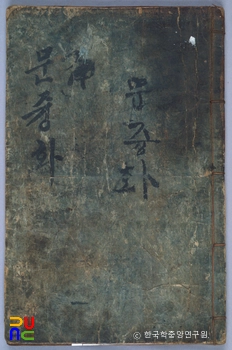 문중화
문중화
© 한국학중앙연구원